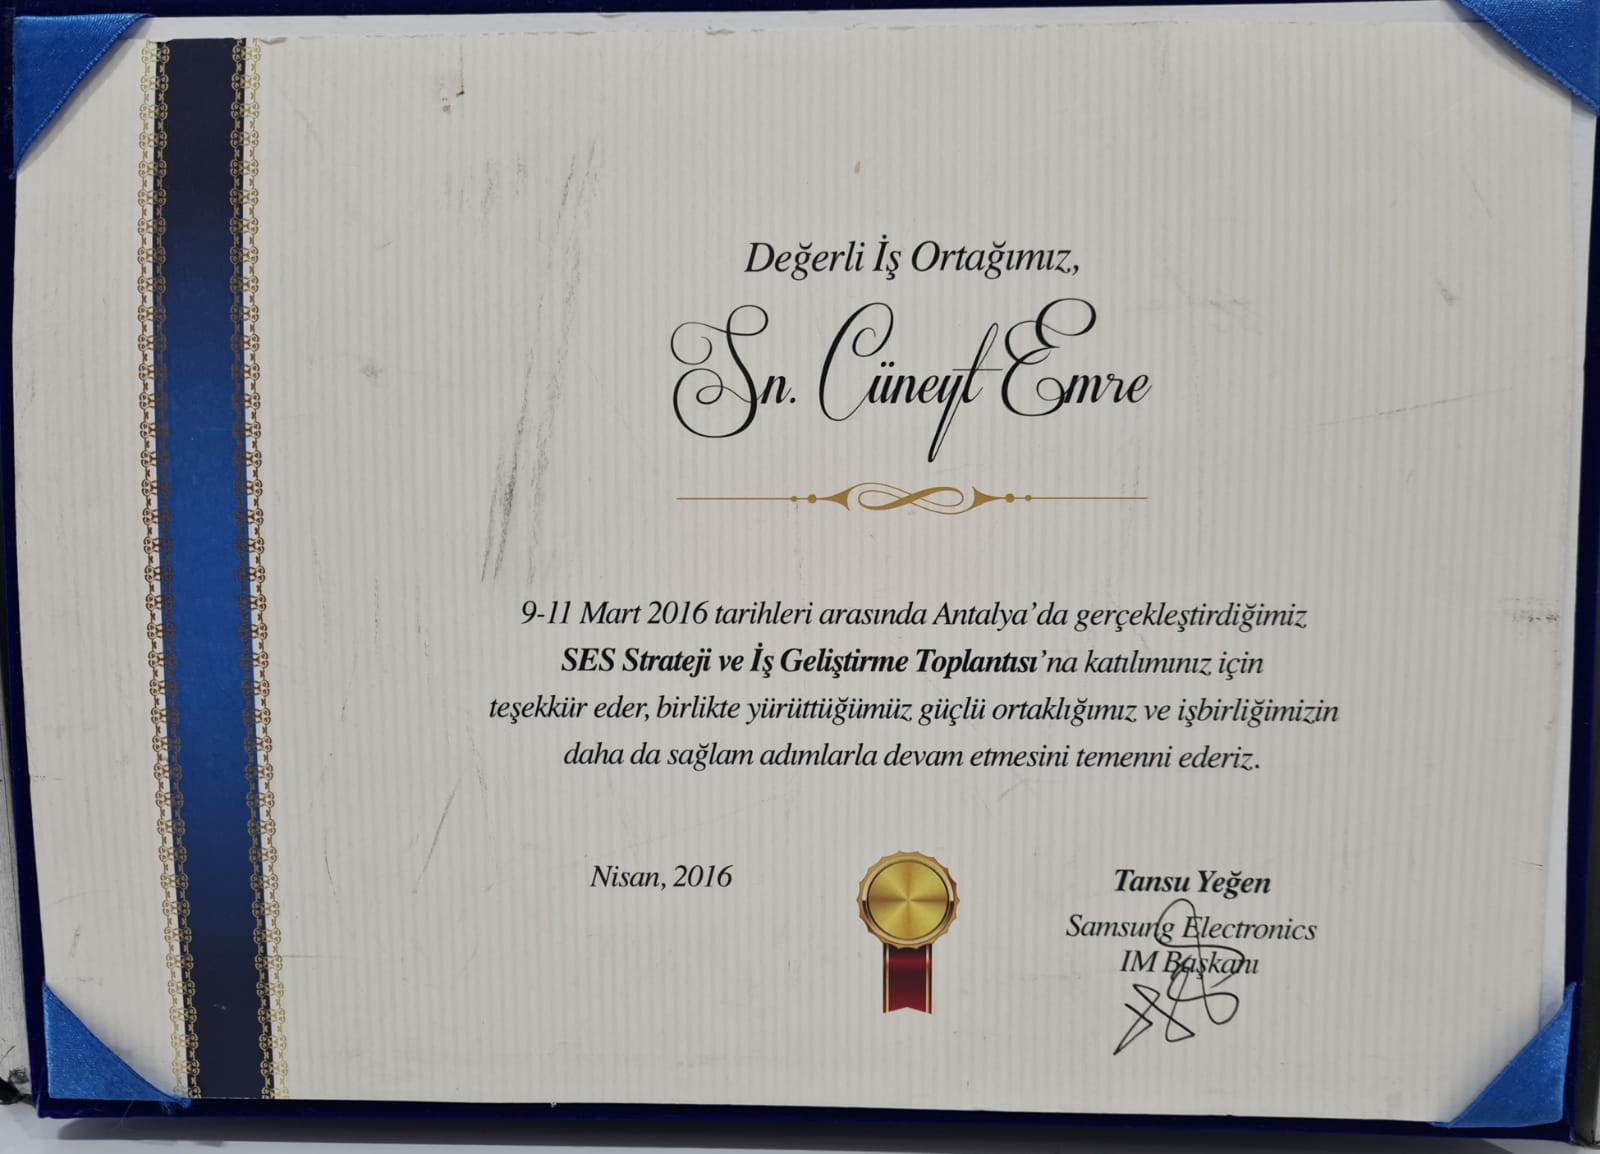 Değerli İş Ortağımız,
Sn. Cüneyt Emre
9-11 Mart 2016 tarihleri arasında Antalya'da gerçekleştirdiğimiz
SES Strateji ve İş Geliştirme Toplantısı'na katılımınız için
teşekkür eder, birlikte yürüttüğümüz güçlü ortaklığımız ve işbirliğimizin
daha da sağlam adımlarla devam etmesini temenni ederiz.
Nisan, 2016
Tansu Yeğen
Samsung Electronics
IM Başkanı